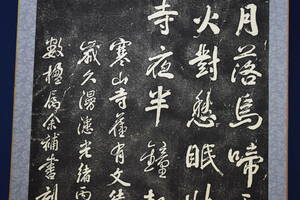 月落烏啼
火對愁眠
寺夜半鐘
寒山寺舊有文待
歲久漫漶光緒丙
數楹屬余補書刻